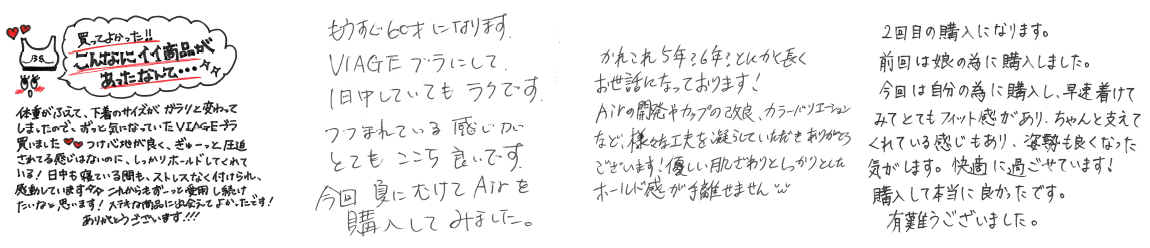 買ってよかった!!
こんなにイイ商品が
あったなんて・・・
体重がふえて、下着のサイズが ガラリと変わって
しまったので、ずっと気になっていたVIAGEブラ
買いました♥♥つけ心地が良く、ぎゅーっと圧迫
されてる感じはないのに、しっかりホールドしてくれて
いる!日中も寝ている間も、ストレスなく付けられ、
感動しています これからもずーっと愛用し続け
たいなと思います!ステキな商品に出会えてよかったです!
ありがとうございます!!!
もうすぐ60才になります.
VIAGEブラにして.
1日中していても ラクです.
つつまれている 感じが
とても ここち 良いです.
今回 夏にむけて Airを
購入して みました。
かれこれ5年?6年?とにかく長く
お世話になっております!
Airの開発やカップの改良、カラーバリエーション
など、様々な工夫を凝らしていただきありがとう
ございます!優しい肌ざわりとしっかりとした
ホールド感が手離せません
2回目の購入になります。
前回は娘の為に購入しました。
今回は自分の為に購入し、早速着けて
みてとてもフィット感があり、ちゃんと支えて
くれている感じもあり、姿勢も良くなった
気がします。快適に過ごせています!
購入して本当に良かったです。
有難うございました。